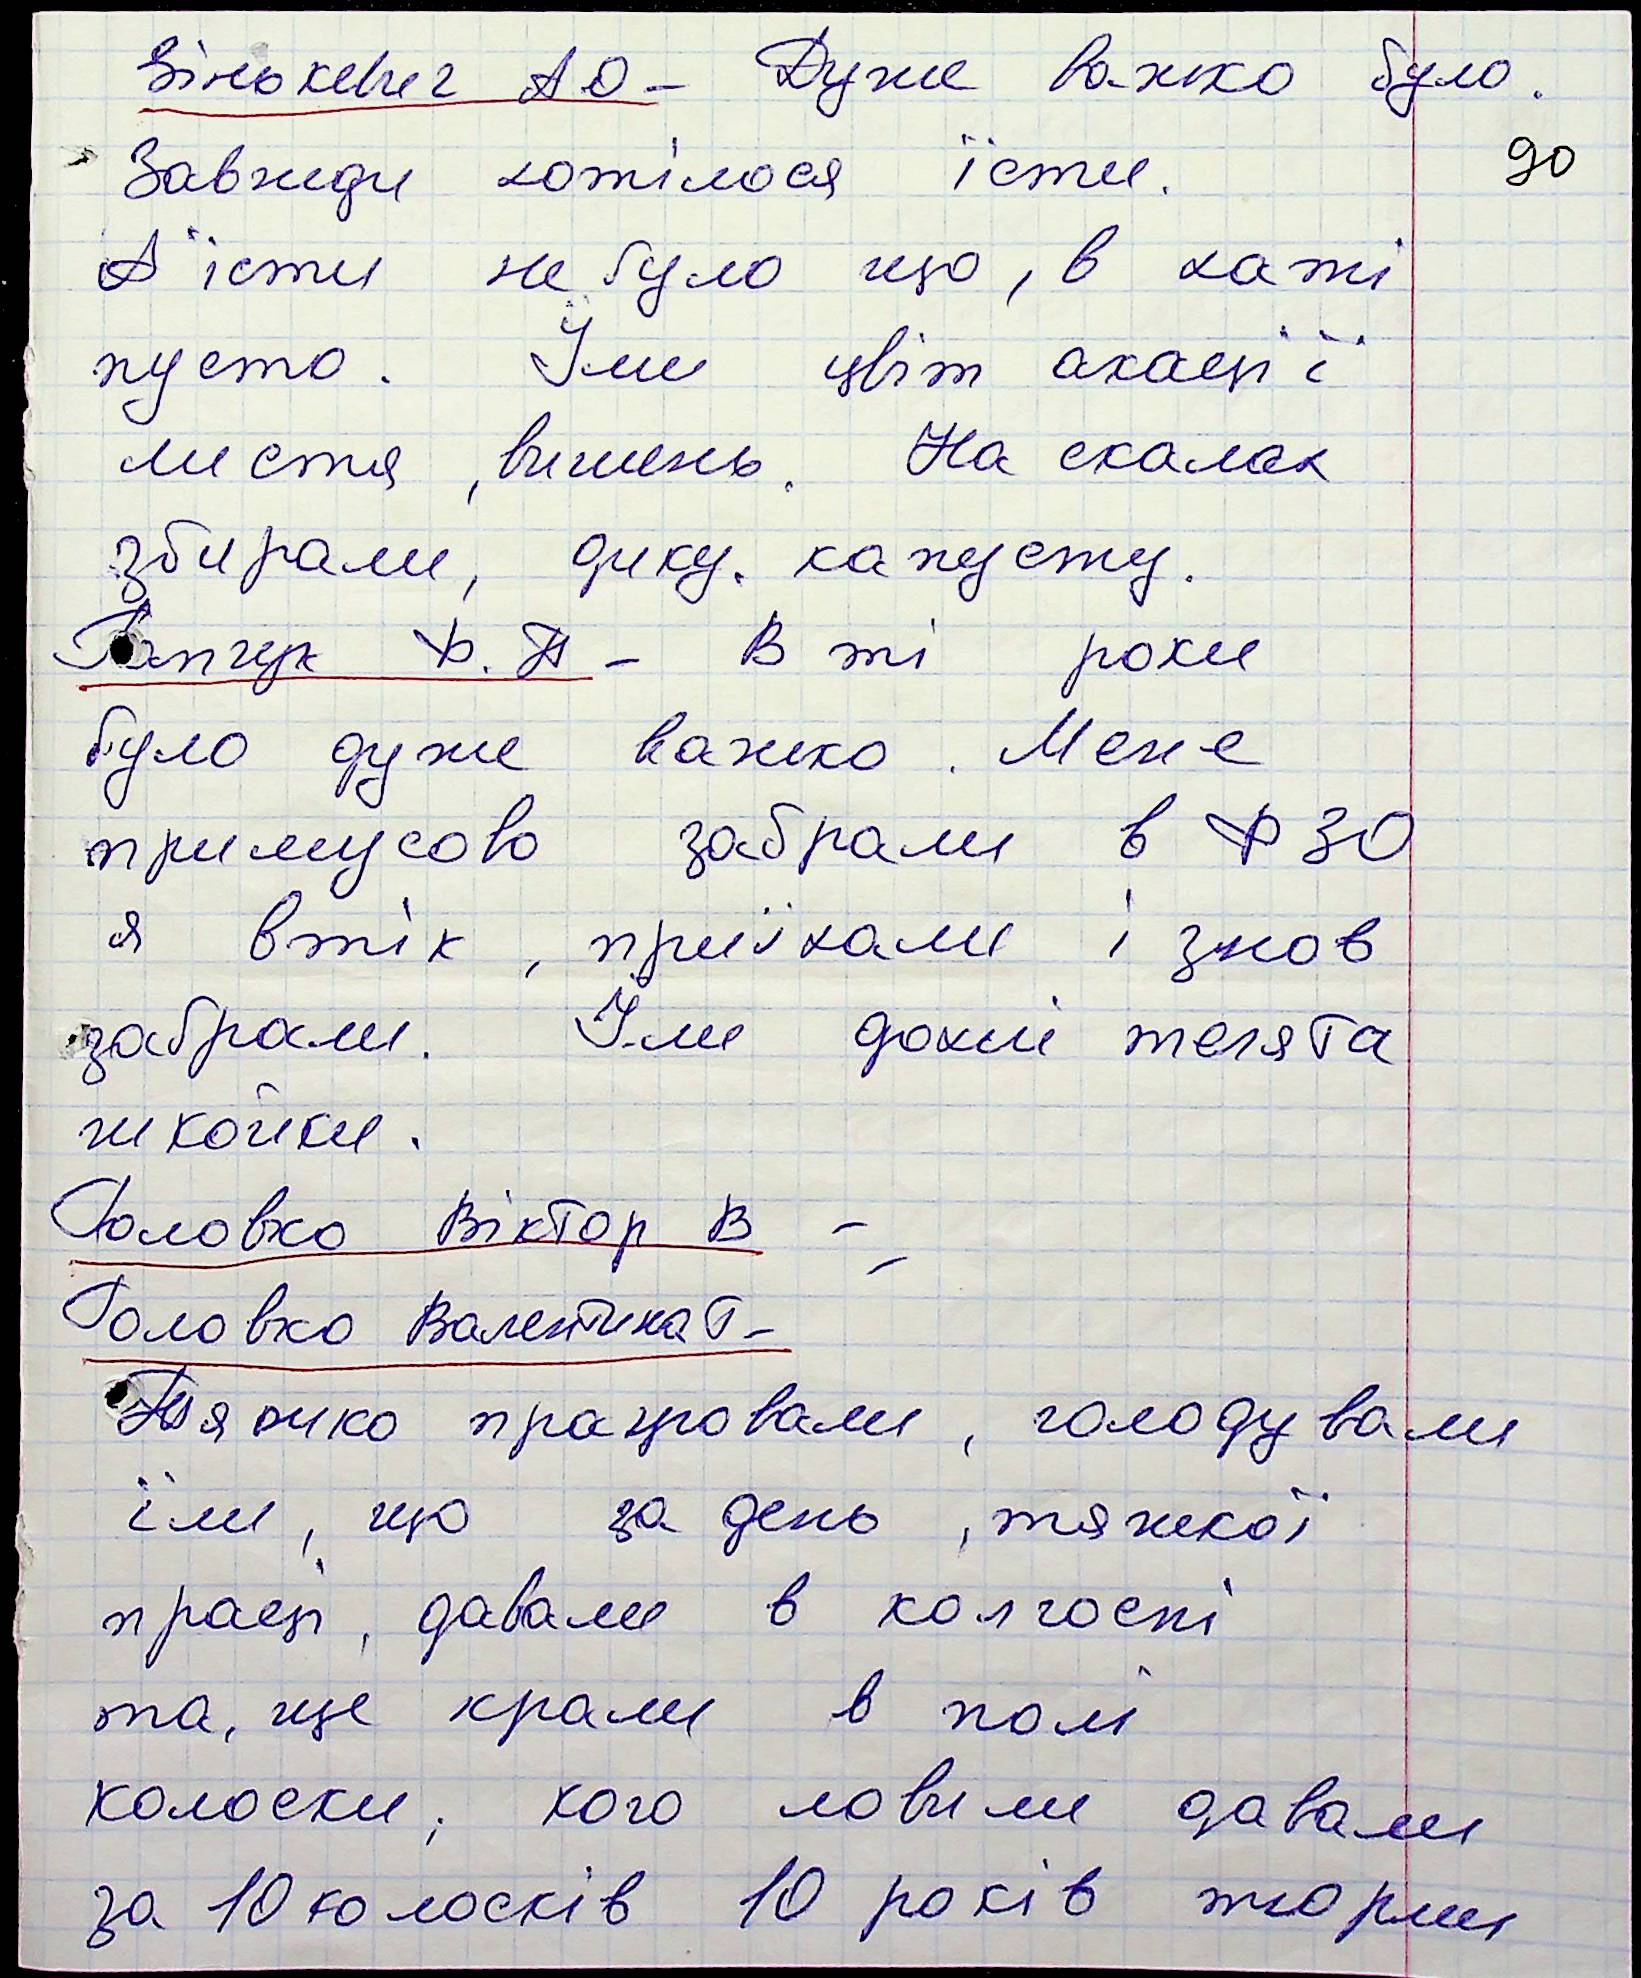 Зінькевич А О – Дуже важко було.
90
Завжди хотілося їсти.
А їсти не було що, в хаті
пусто. Їли цвіт акації
листя, вишень. На скалах
збирали, дику. капусту.
Гапчук Ф. П – В ті роки
було дуже важко. Мене
примусово забрали в ФЗО
я втік, приїхали і знов
забрали. Їли дохлі телята
Головко Віктор В – –
Головко Валентина Г –
Тяжко працювали, голодували
їли, що за день, тяжкої
праці, давали в колгоспі
та, ще крали в полі
колоски, кого ловили давали
за 10 колосків 10 років тюрми